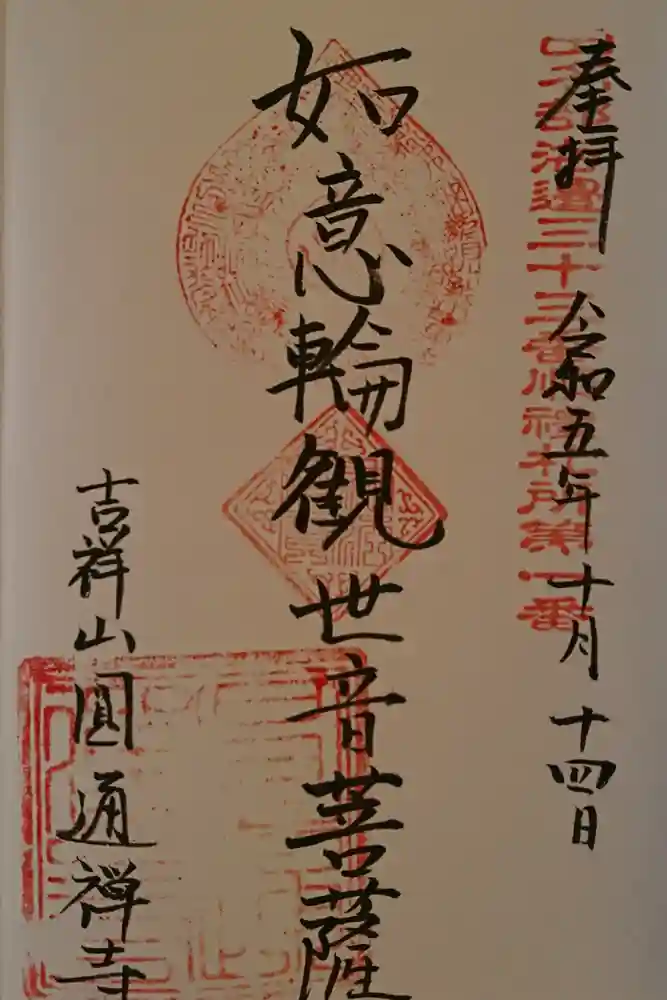 奉拝 令和五年十月十四日
三十三番札所第一番
如意輪観世音菩薩
吉祥山圓通禅寺